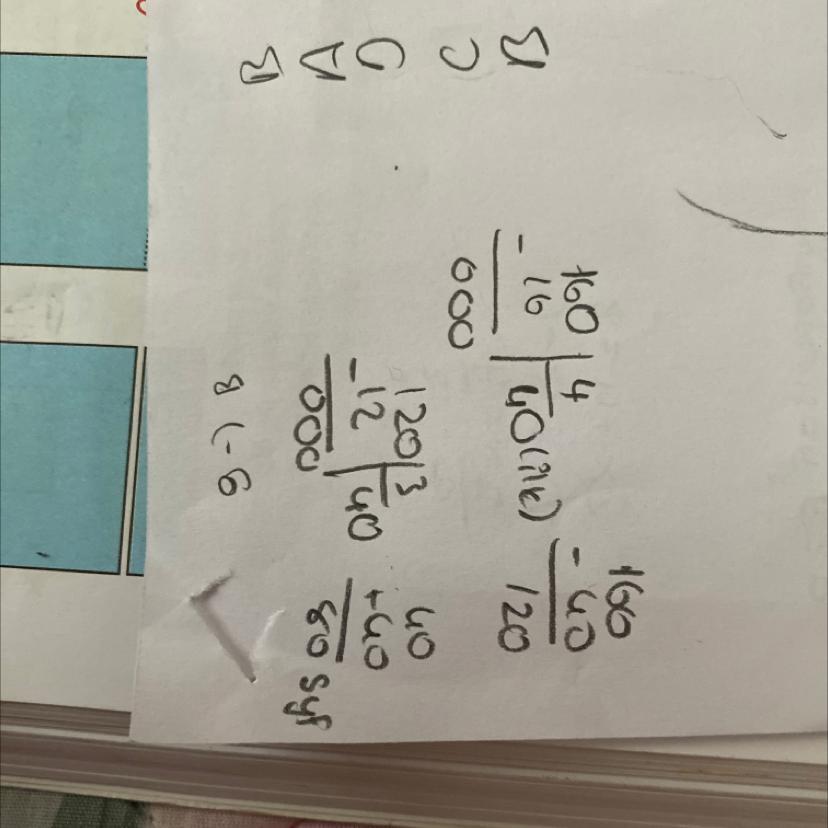 B
C
D
A
B
160 4
- 16 40 (ilk)
000
160
- 40
120
120 3
- 12 40
000
40
+ 40
80 syf